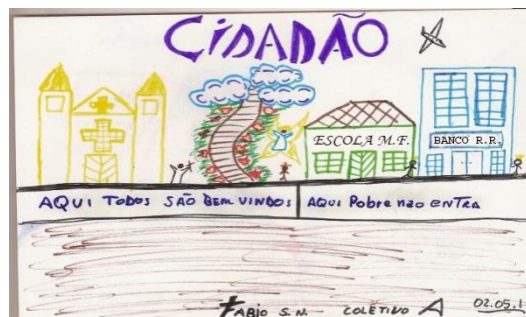 CIDADÃO
ESCOLA M.F.
BANCO R.R.
AQUI TODOS SÃO BEM VINDOS
AQUI Pobre não ENTRA
FABIO S.N. COLETIVO A 02.05.1